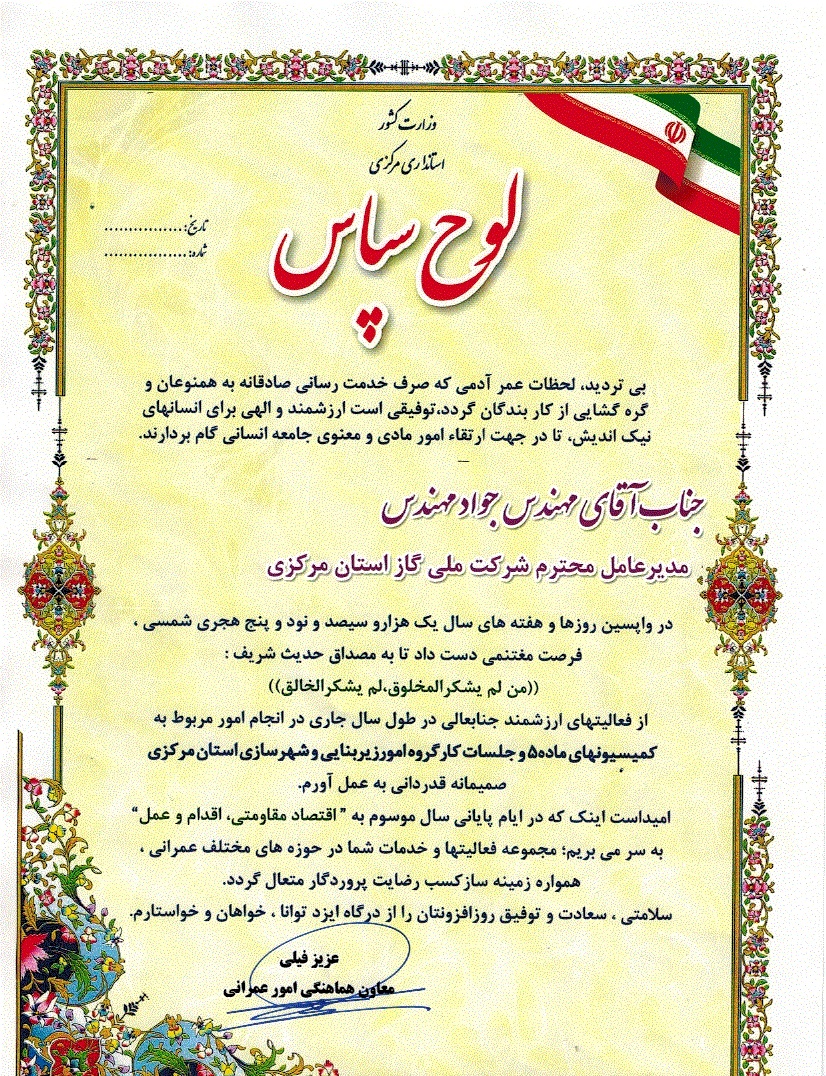 وزارت کشور
استانداری مرکزی
لوح سپاس
تاریخ:................
شماره:................
بی تردید، لحظات عمر آدمی که صرف خدمت رسانی صادقانه به همنوعان و
گره گشایی از کار بندگان گردد،توفیقی است ارزشمند و الهی برای انسانهای
نیک اندیش، تا در جهت ارتقاء امور مادی و معنوی جامعه انسانی گام بردارند.
جناب آقای مهندس جواد مهندس
مدیرعامل محترم شرکت ملی گاز استان مرکزی
در واپسین روزها و هفته های سال یک هزارو سیصد و نود و پنج هجری شمسی ،
فرصت مغتنمی دست داد تا به مصداق حدیث شریف :
((من لم یشکرالمخلوق،لم یشکرالخالق))
از فعالیتهای ارزشمند جنابعالی در طول سال جاری در انجام امور مربوط به
کمیسیونهای ماده۵ و جلسات کارگروه امورزیربنایی و شهرسازی استان مرکزی
صمیمانه قدردانی به عمل آورم.
امیداست اینک که در ایام پایانی سال موسوم به " اقتصاد مقاومتی، اقدام و عمل"
به سر می بریم؛ مجموعه فعالیتها و خدمات شما در حوزه های مختلف عمرانی ،
همواره زمینه سازکسب رضایت پروردگار متعال گردد.
سلامتی ، سعادت و توفیق روزافزونتان را از درگاه ایزد توانا ، خواهان و خواستارم.
عزیز فیلی
معاون هماهنگی امور عمرانی